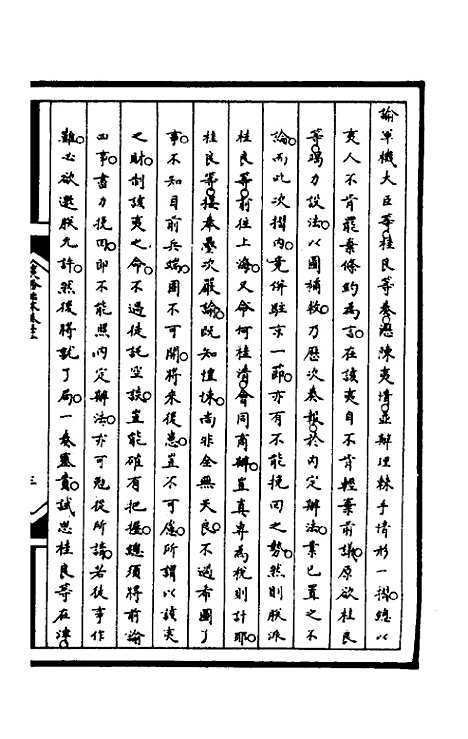 諭軍機大臣等桂良等奏瀝陳夷情並辦理棘手情形一摺總以
夷人不肯罷棄條約為言在該夷自不肯輕棄前議原欲桂良
等竭力設法以圖補救乃歷次奏報於內定辦法業已置之不
論而此次摺內竟併駐京一節亦有不能挽回之勢然則朕派
桂良等前往上海又命何桂清會同商辦豈真專為稅則計耶
桂良等接奉疊次嚴諭既知惶悚尚非全無天良不過希圖了
事不知目前兵端固不可開將來後患豈不可慮所謂以該夷
之財制該夷之命不過徒託空談豈能確有把握總須將前諭
四事盡力挽回即不能照內定辦法亦可勉從所請若徒事作
難必欲邀朕允許然後將就了局一奏塞責試思桂良等在津
三